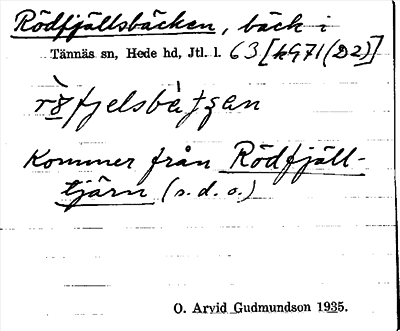 Rödfjällsbäcken, bäck i
Tännäs sn, Hede hd, Jtl. l. 63[k971(D2)]
Kommer från Rödfjäll-
tjärn (s.d.o.)
O. Arvid Gudmundson 1935.